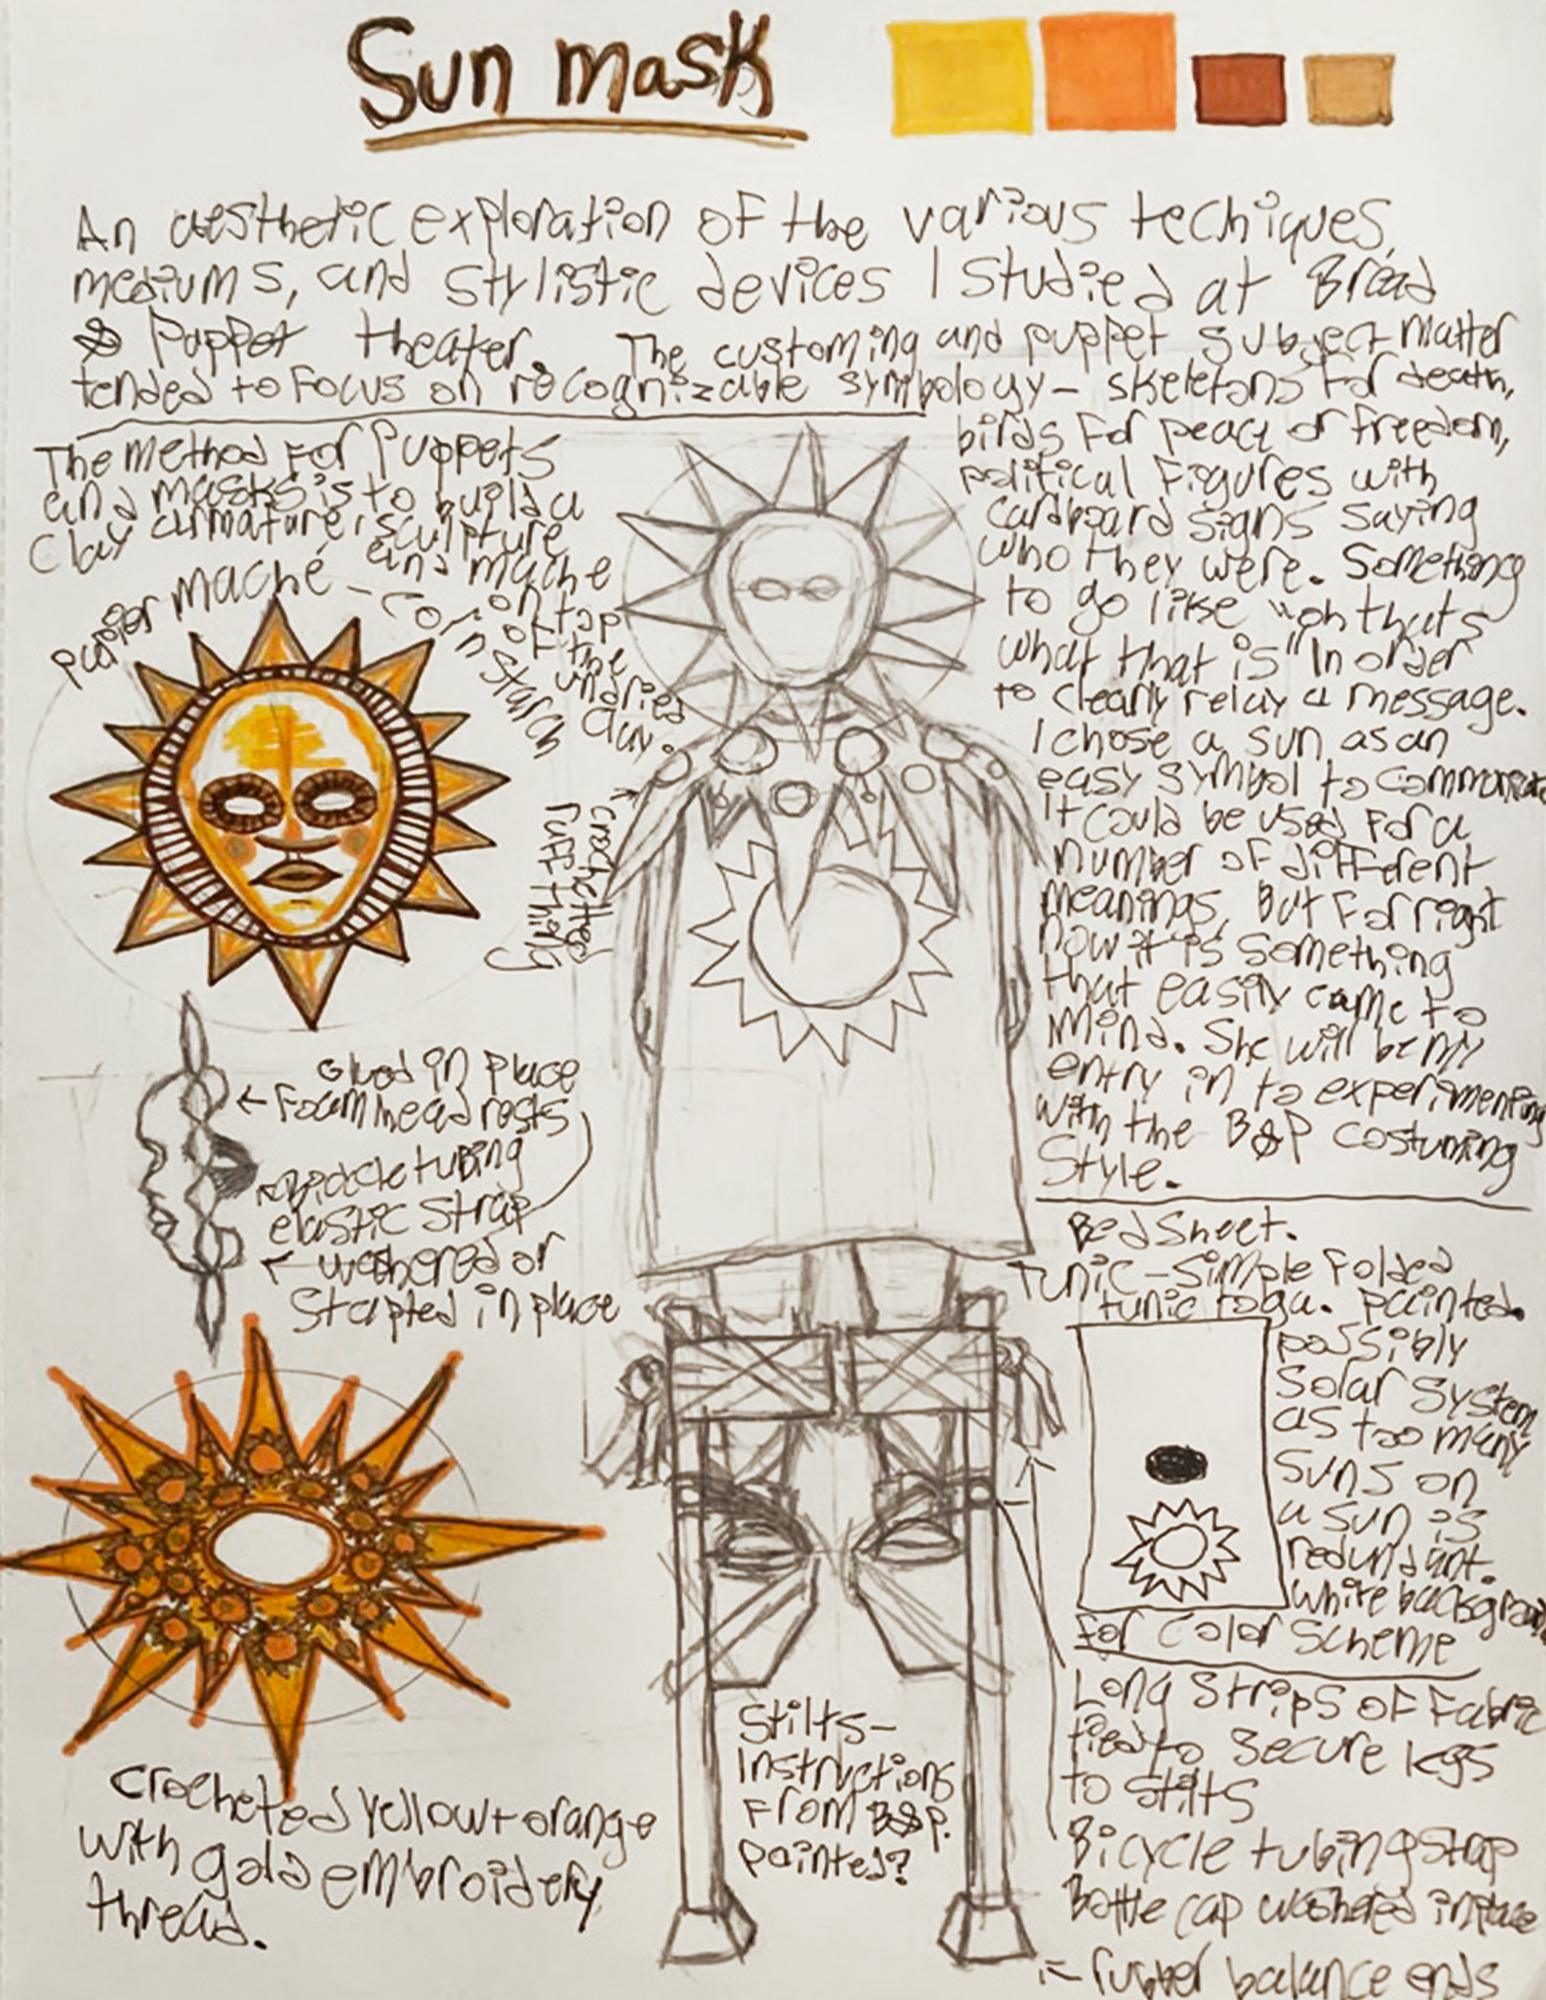 Sun mask
An aesthetic exploration of the various techiques,
mediums, and stylistic devices I studied at Bread
& Puppet theater. The customing and puppet subject matter
tended to focus on recognizable symbology- skeletons for death,
birds for peace or freedom,
political figures with
cardboard signs saying
who they were. Something
to go like "oh thats
what that is" In order
to clearly relay a message.
I chose a sun as an
easy symbol to communicate
It could be used for a
number of different
meanings, but for right
now it is something
that easily came to
mind. She will be my
entry in to experimenting
with the B&P costuming
Style.
The method for Puppets
and masks is to build a
Clay armature/sculpture
and mache
on top
of the
undried
clay.
papier maché - corn starch
crocheted
ruff thing
Glued in place
← Foam head rests
← Bicycle tubing
elastic strap
← washered or
Stapled in place
Crocheted yellow + orange
with gold embroidery
thread.
Bed Sheet.
Tunic - simple folded
tunic toga. painted.
possibly
Solar System
as too many
Suns on
a sun is
redundant.
white background
for color scheme
Long strips of fabric
tied to secure legs
to stilts
Bicycle tubing strap
Bottle cap washered in place
← rubber balance ends
Stilts-
Instructions
From B&P.
painted?